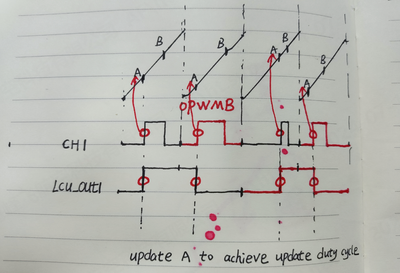 B B B B
A A A A
OPWMB
CH1
LCU_OUT1
update A to achieve update duty cycle